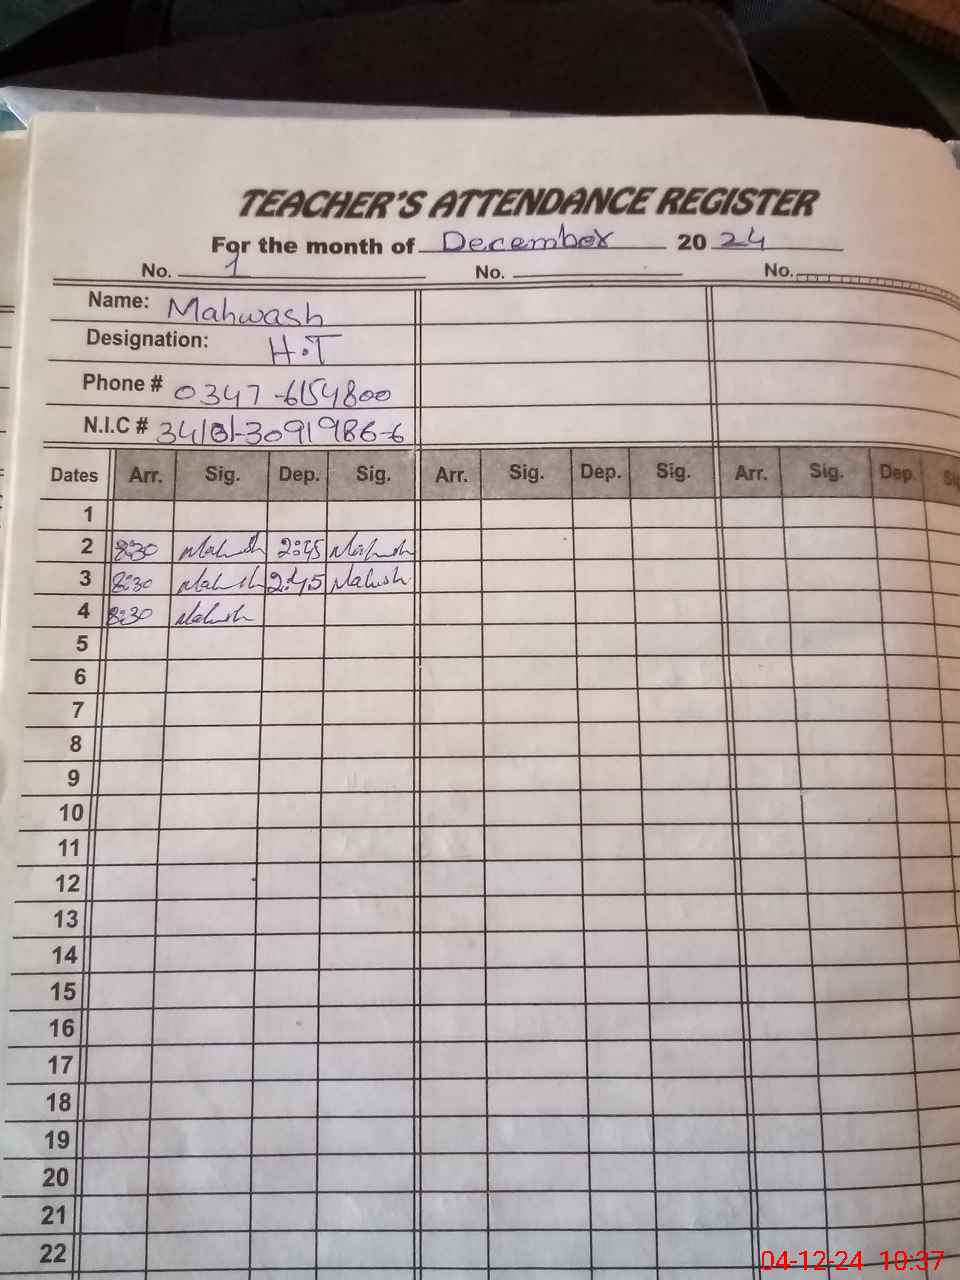 TEACHER'S ATTENDANCE REGISTER
For the month of December 2024
No. 1 No. No.
Name: Mahwash
Designation: H.T
Phone # 0347-6154800
N.I.C # 34101-3091986-6
Dates Arr. Sig. Dep. Sig. Arr. Sig. Dep. Sig. Arr. Sig. Dep.
1
2 8:30 Mahwash 2:45 Mahwash
3 8:30 Mahwash 2:45 Mahwash
4 8:30 Mahwash
5
6
7
8
9
10
11
12
13
14
15
16
17
18
19
20
21
22
04-12-24 10:37